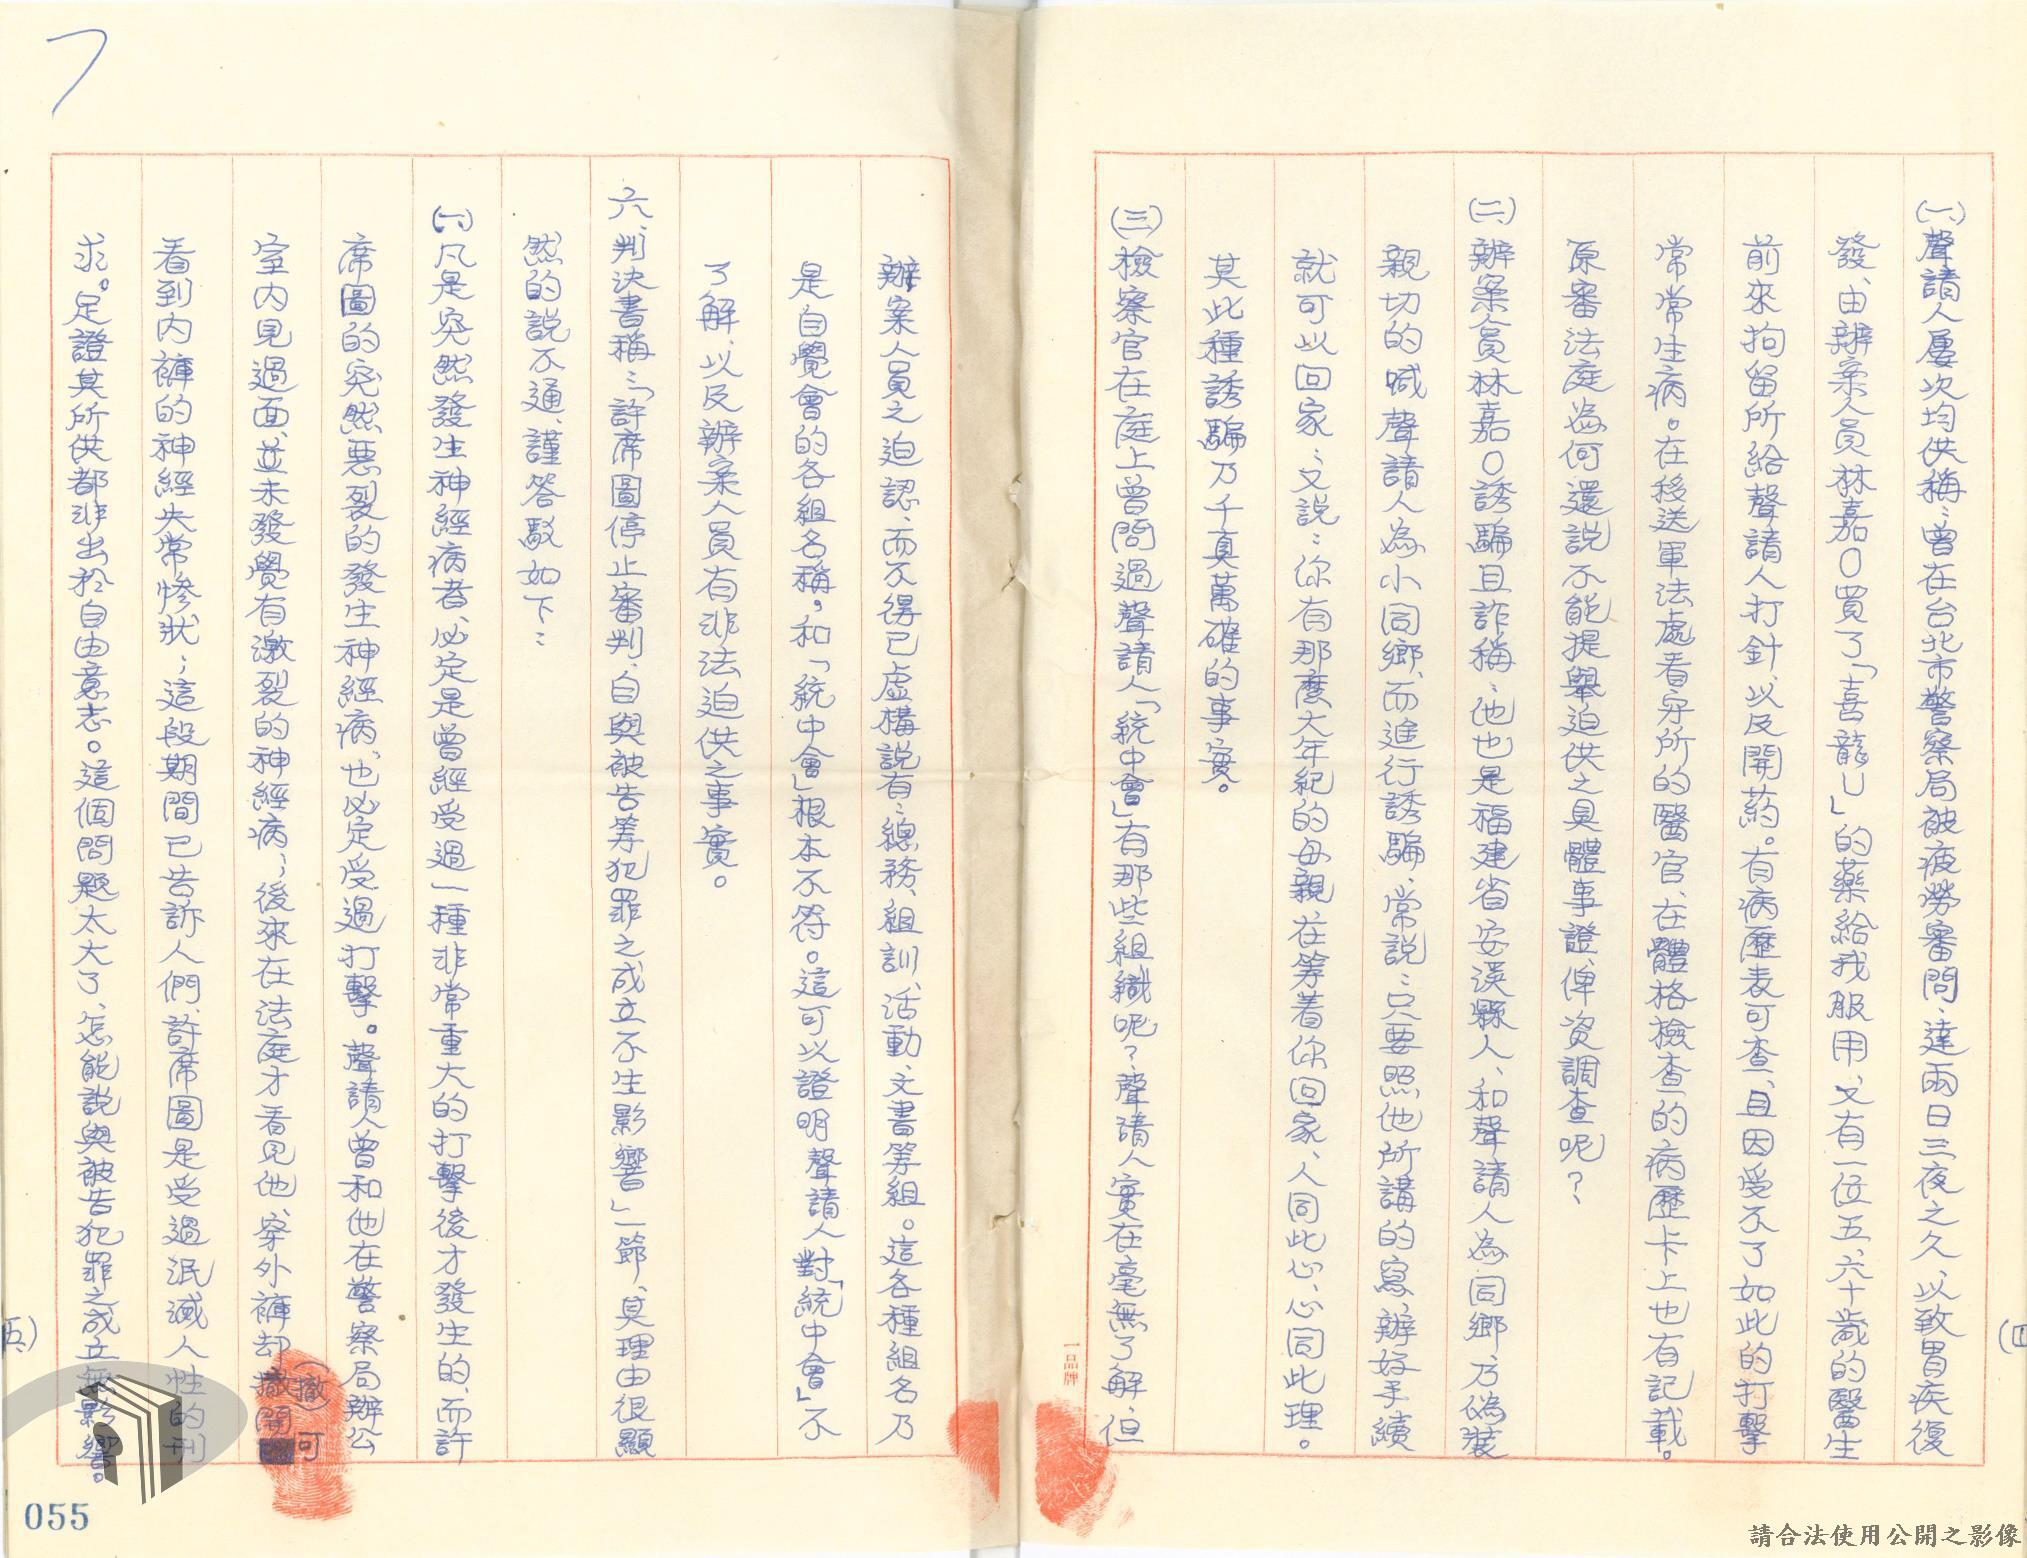 (一)、聲請人屢次均供稱：曾在台北市警察局被疲勞審問、達兩日三夜之久、以致胃疾復
發、由辦案人員林嘉○買了「喜龍U」的藥給我服用、又有一位五、六十歲的醫生
前來拘留所給聲請人打針、以及開葯。有病歷表可查、且因受不了如此的打擊
常常生病。在移送軍法處看守所的醫官、在體格檢查的病歷卡上也有記載。
原審法庭為何還說不能提舉迫供之具體事證、俾資調查呢？、
(二)、辦案員林嘉○誘騙且詐稱：他也是福建省安溪縣人、和聲請人為同鄉、乃偽裝
親切的喊聲請人為小同鄉、而進行誘騙、常說：只要照他所講的寫、辦好手續
就可以回家；又說：你有那麼大年紀的母親、在等着你回家、人同此心、心同此理。
其此種誘騙乃千真萬確的事實。
(三)檢察官在庭上曾問過聲請人「統中會」有那些組織呢？聲請人實在毫無了解、但
一品牌
(四
辦案人員之迫認、而不得已虛構說有：總務、組訓、活動、文書等組。這各種組名乃
是自覺會的各組名稱。和「統中會」根本不符。這可以證明聲請人對「統中會」不
了解、以及辦案人員有非法迫供之事實。
六、判決書稱：「許席圖停止審判、自與被告等犯罪之成立不生影響」一節、其理由很顯
然的說不通、謹答駁如下：
(一)、凡是突然發生神經病者、必定是曾經受過一種非常重大的打擊後才發生的、而許
席圖的突然惡裂的發生神經病、也必定受過打擊。聲請人曾和他在警察局辦公
室內見過面、並未發覺有激裂的神經病；後來在法庭才看見他、穿外褲却撤開
(撤)可
看到內褲的神經失常慘狀；這段期間已告訴人們、許席圖是受過泯滅人性的刑
求。足證其所供都非出於自由意志。這個問題太大了、怎能說與被告犯罪之成立無影響。
五)
055
請合法使用公開之影像